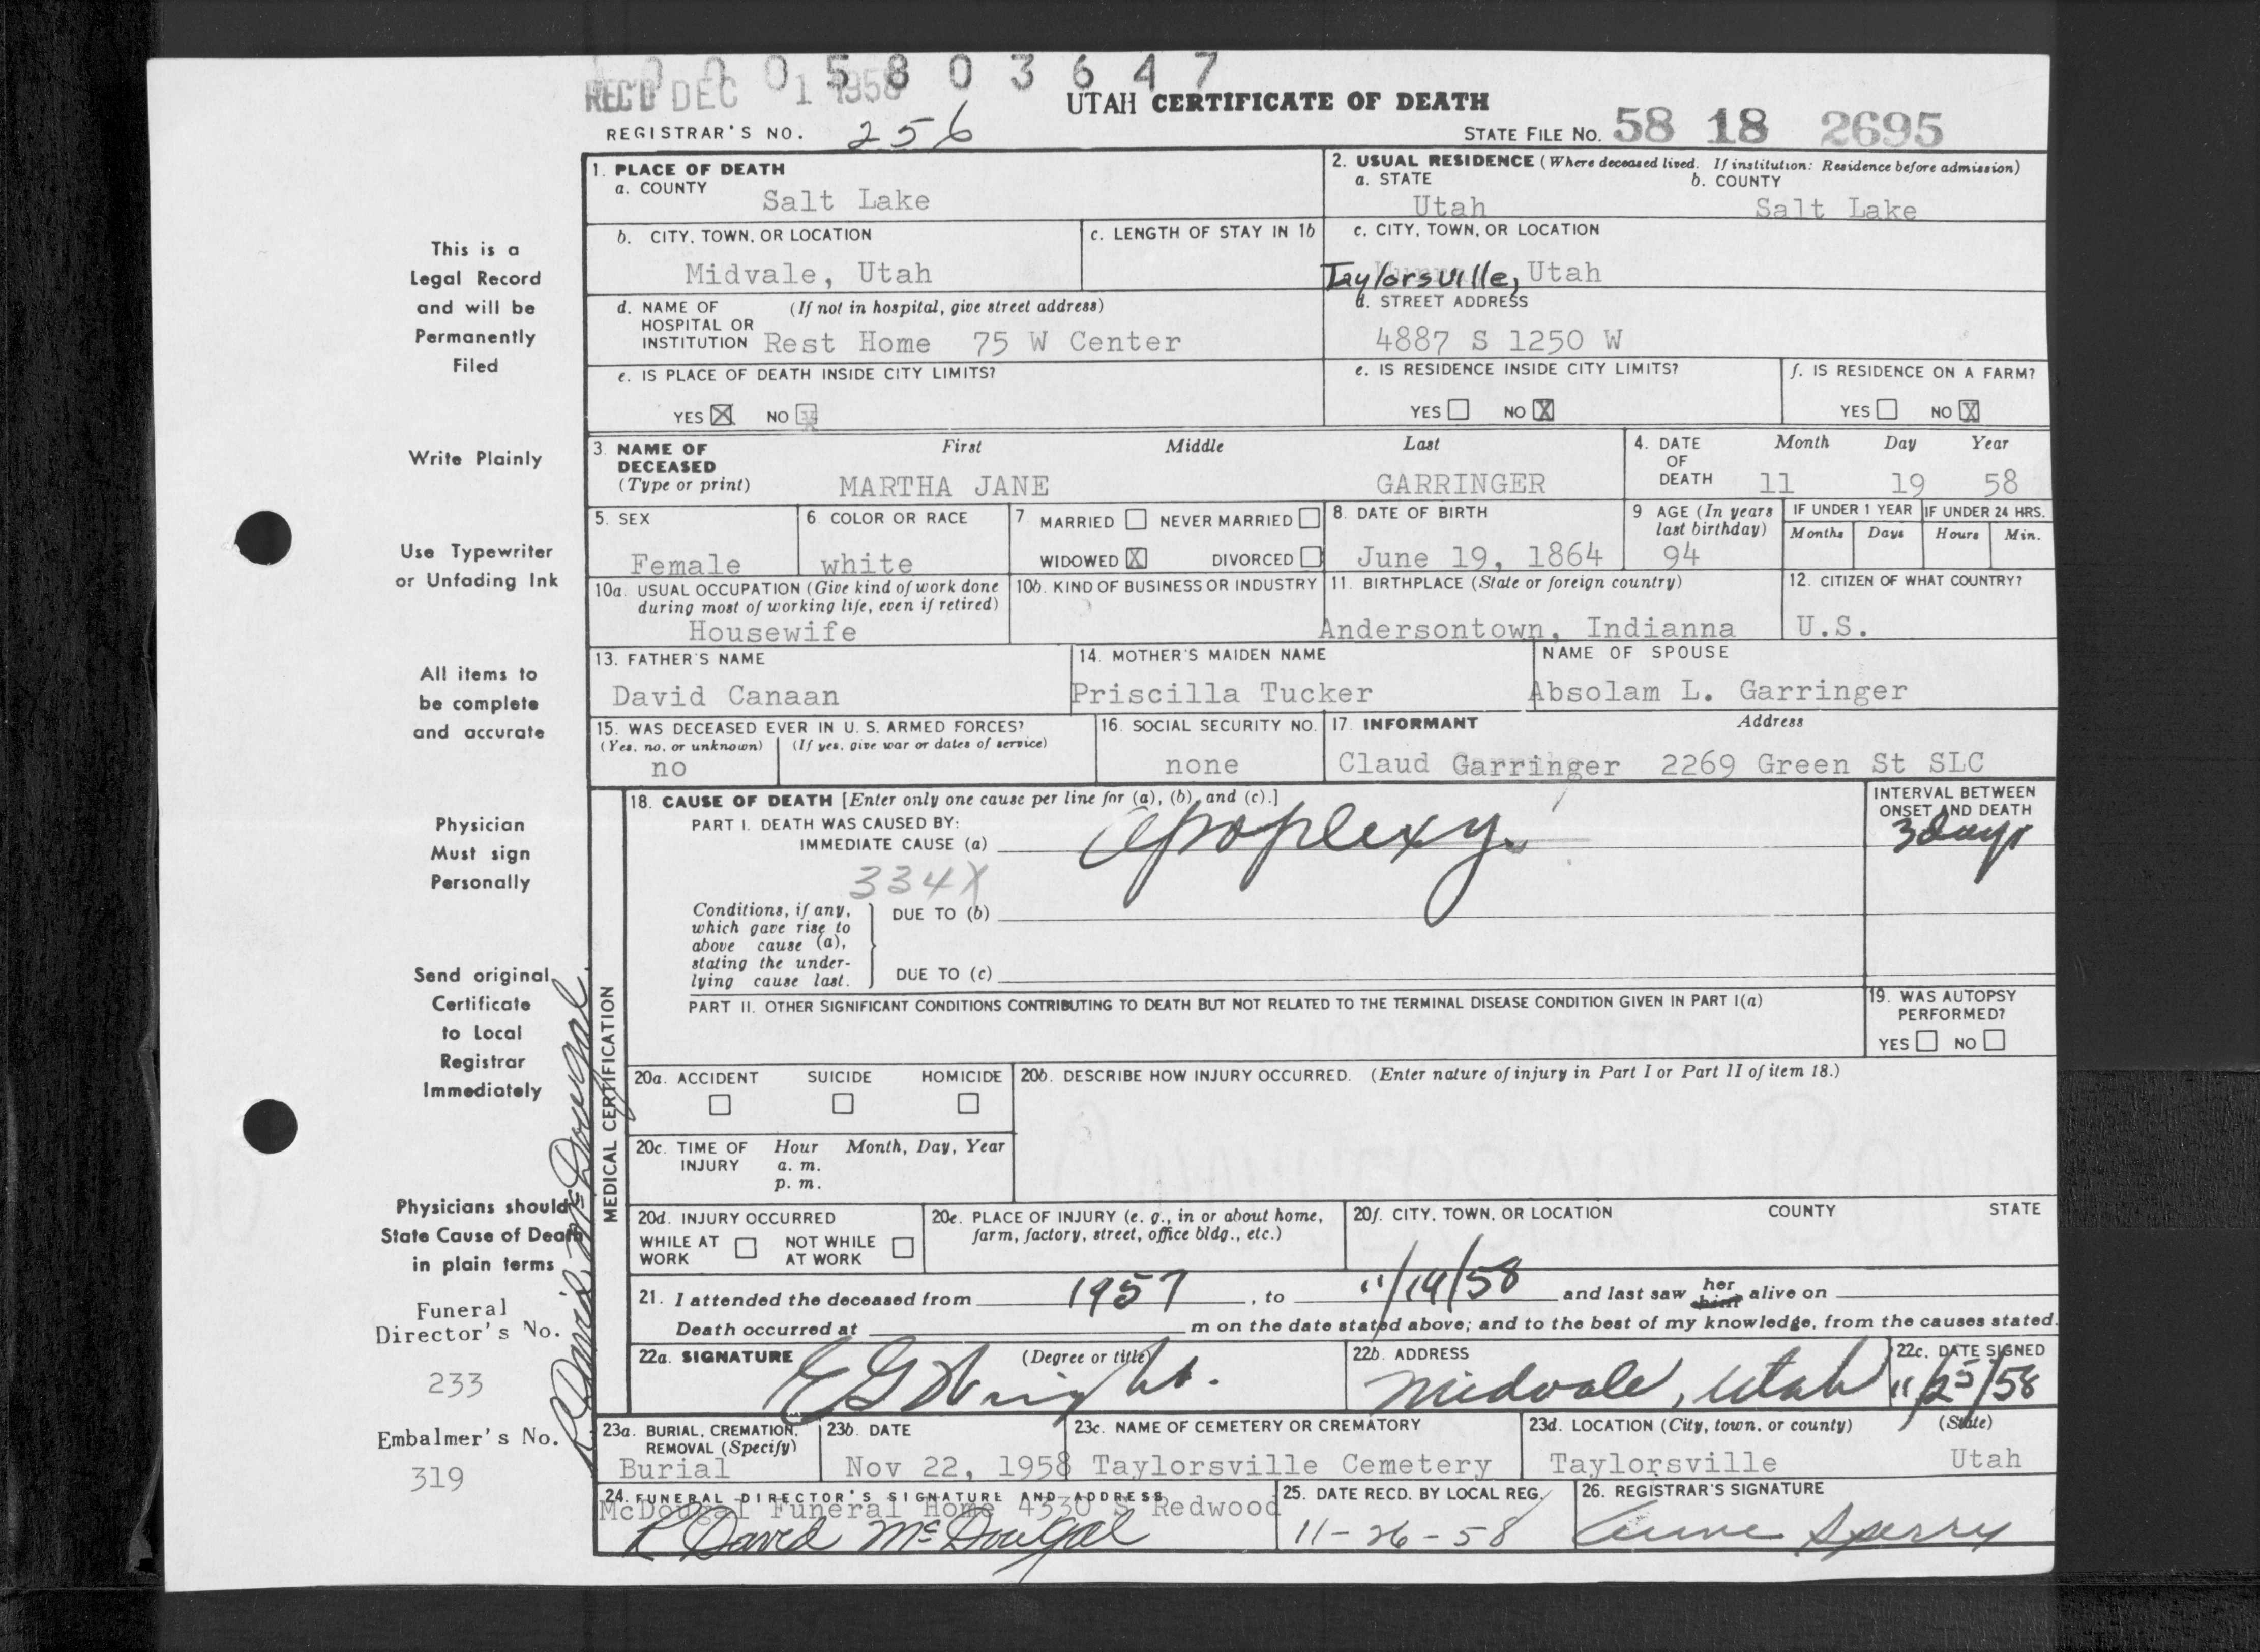 10005803647
REC'D DEC 1 1958
UTAH CERTIFICATE OF DEATH
REGISTRAR'S NO. 256
STATE FILE NO. 58 18 2695
1. PLACE OF DEATH
a. COUNTY
Salt Lake
2. USUAL RESIDENCE (Where deceased lived. If institution: Residence before admission)
a. STATE b. COUNTY
Utah Salt Lake
b. CITY, TOWN, OR LOCATION
Midvale, Utah
c. LENGTH OF STAY IN 1b
c. CITY, TOWN, OR LOCATION
Taylorsville, Utah
d. NAME OF HOSPITAL OR INSTITUTION (If not in hospital, give street address)
Rest Home 75 W Center
d. STREET ADDRESS
4887 S 1250 W
e. IS PLACE OF DEATH INSIDE CITY LIMITS?
YES X NO
e. IS RESIDENCE INSIDE CITY LIMITS?
YES NO X
f. IS RESIDENCE ON A FARM?
YES NO X
3. NAME OF DECEASED (Type or print)
First Middle Last
MARTHA JANE GARRINGER
4. DATE OF DEATH
Month Day Year
11 19 58
5. SEX
Female
6. COLOR OR RACE
white
7. MARRIED NEVER MARRIED
WIDOWED X DIVORCED
8. DATE OF BIRTH
June 19, 1864
9 AGE (In years last birthday)
94
IF UNDER 1 YEAR IF UNDER 24 HRS.
Months Days Hours Min.
10a. USUAL OCCUPATION (Give kind of work done during most of working life, even if retired)
Housewife
10b. KIND OF BUSINESS OR INDUSTRY
11. BIRTHPLACE (State or foreign country)
Andersontown, Indianna
12. CITIZEN OF WHAT COUNTRY?
U.S.
13. FATHER'S NAME
David Canaan
14. MOTHER'S MAIDEN NAME
Priscilla Tucker
NAME OF SPOUSE
Absolam L. Garringer
15. WAS DECEASED EVER IN U. S. ARMED FORCES?
(Yes, no, or unknown) (If yes, give war or dates of service)
no
16. SOCIAL SECURITY NO.
none
17. INFORMANT Address
Claud Garringer 2269 Green St SLC
MEDICAL CERTIFICATION
18. CAUSE OF DEATH [Enter only one cause per line for (a), (b), and (c).]
PART I. DEATH WAS CAUSED BY:
IMMEDIATE CAUSE (a) Apoplexy.
INTERVAL BETWEEN ONSET AND DEATH
3 days
334X
Conditions, if any, which gave rise to above cause (a), stating the underlying cause last.
DUE TO (b)
DUE TO (c)
PART II. OTHER SIGNIFICANT CONDITIONS CONTRIBUTING TO DEATH BUT NOT RELATED TO THE TERMINAL DISEASE CONDITION GIVEN IN PART I(a)
19. WAS AUTOPSY PERFORMED?
YES NO
20a. ACCIDENT SUICIDE HOMICIDE
20b. DESCRIBE HOW INJURY OCCURRED. (Enter nature of injury in Part I or Part II of item 18.)
20c. TIME OF INJURY Hour Month, Day, Year
a. m.
p. m.
20d. INJURY OCCURRED
WHILE AT WORK NOT WHILE AT WORK
20e. PLACE OF INJURY (e. g., in or about home, farm, factory, street, office bldg., etc.)
20f. CITY, TOWN, OR LOCATION COUNTY STATE
21. I attended the deceased from 1957, to 11/19/58 and last saw her him alive on
Death occurred at m on the date stated above; and to the best of my knowledge, from the causes stated.
22a. SIGNATURE (Degree or title)
E G Wright.
22b. ADDRESS
Midvale, Utah
22c. DATE SIGNED
11/25/58
23a. BURIAL, CREMATION, REMOVAL (Specify)
Burial
23b. DATE
Nov 22, 1958
23c. NAME OF CEMETERY OR CREMATORY
Taylorsville Cemetery
23d. LOCATION (City, town, or county) (State)
Taylorsville Utah
24. FUNERAL DIRECTOR'S SIGNATURE AND ADDRESS
McDougal Funeral Home 4330 S Redwood
R David McDougal
25. DATE RECD. BY LOCAL REG.
11-26-58
26. REGISTRAR'S SIGNATURE
Sperry
This is a
Legal Record
and will be
Permanently
Filed
Write Plainly
Use Typewriter
or Unfading Ink
All items to
be complete
and accurate
Physician
Must sign
Personally
Send original
Certificate
to Local
Registrar
Immediately
Physicians should
State Cause of Death
in plain terms
Funeral
Director's No.
233
Embalmer's No.
319
R David McDougal.